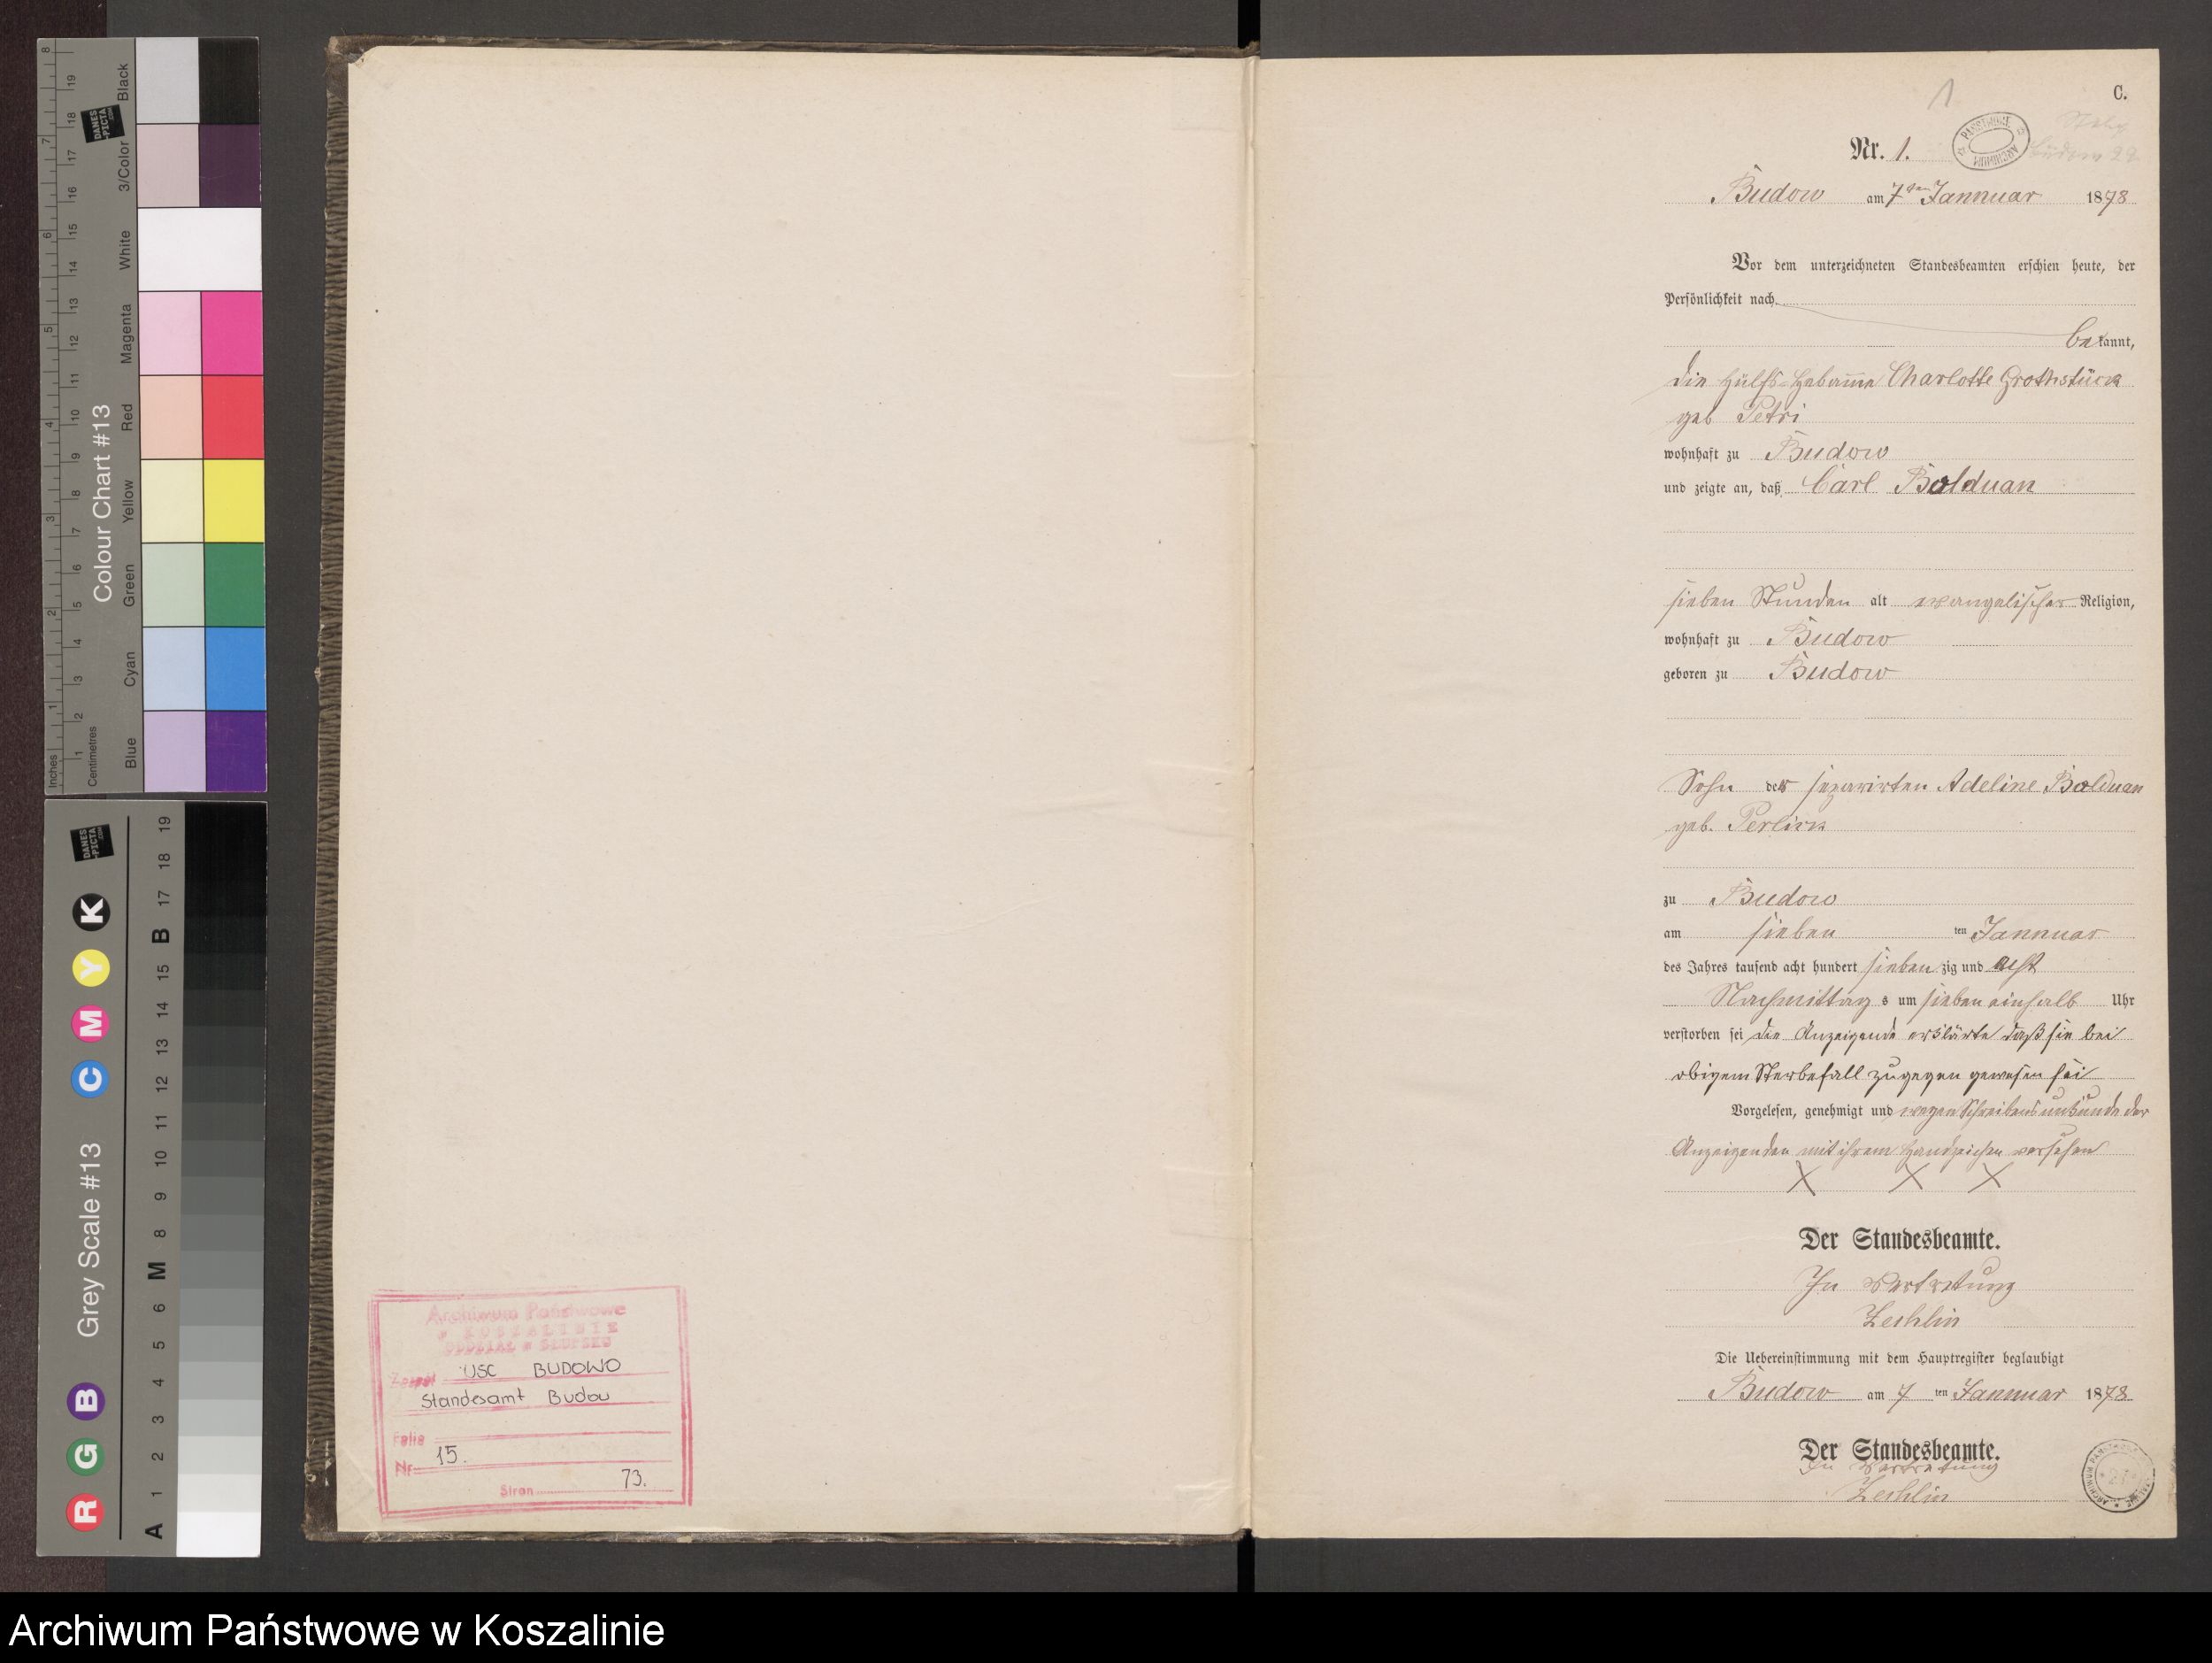 C.
1
Nr. 1.
PAŃSTWOWE ARCHIWUM
Budow am 7ten Jannuar 1878
Vor dem unterzeichneten Standesbeamten erschien heute, der
Persönlichkeit nach
bekannt,
die Hülfs-Hebamme Charlotte Grothstück
geb Petri
wohnhaft zu Budow
und zeigte an, daß Carl Balduan
sieben Stunden alt evangelischer Religion,
wohnhaft zu Budow
geboren zu Budow
Sohn der separirten Adeline Balduan
geb. Perlick
zu Budow
am sieben ten Jannuar
des Jahres tausend acht hundert sieben zig und acht
Nachmittag s um sieben einhalb Uhr
verstorben sei die Anzeigende erklärte daß sie bei
obigem Sterbefall zugegen gewesen sei
Vorgelesen, genehmigt und wegen Schreibensunkunde der
Anzeigenden mit ihrem Handzeichen versehen
X X X
Der Standesbeamte.
In Vertretung
Zechlin
Die Uebereinstimmung mit dem Hauptregister beglaubigt
Budow am 7 ten Jannuar 1878
Der Standesbeamte.
In Vertretung
Zechlin
Archiwum Państwowe
w KOSZALINIE
ODDZIAŁ w SŁUPSKU
Zespół USC BUDOWO
Standesamt Budow
Folio
Nr 15.
Stron 73.
Colour Chart #13
Inches
Centimetres
Blue Cyan Green Yellow Red Magenta White 3/Color Black
DANES-PICTA.COM
Grey Scale #13
R G B C M Y K
A 1 2 3 4 5 6 M 8 9 10 11 12 13 14 15 B 17 18 19
Archiwum Państwowe w Koszalinie